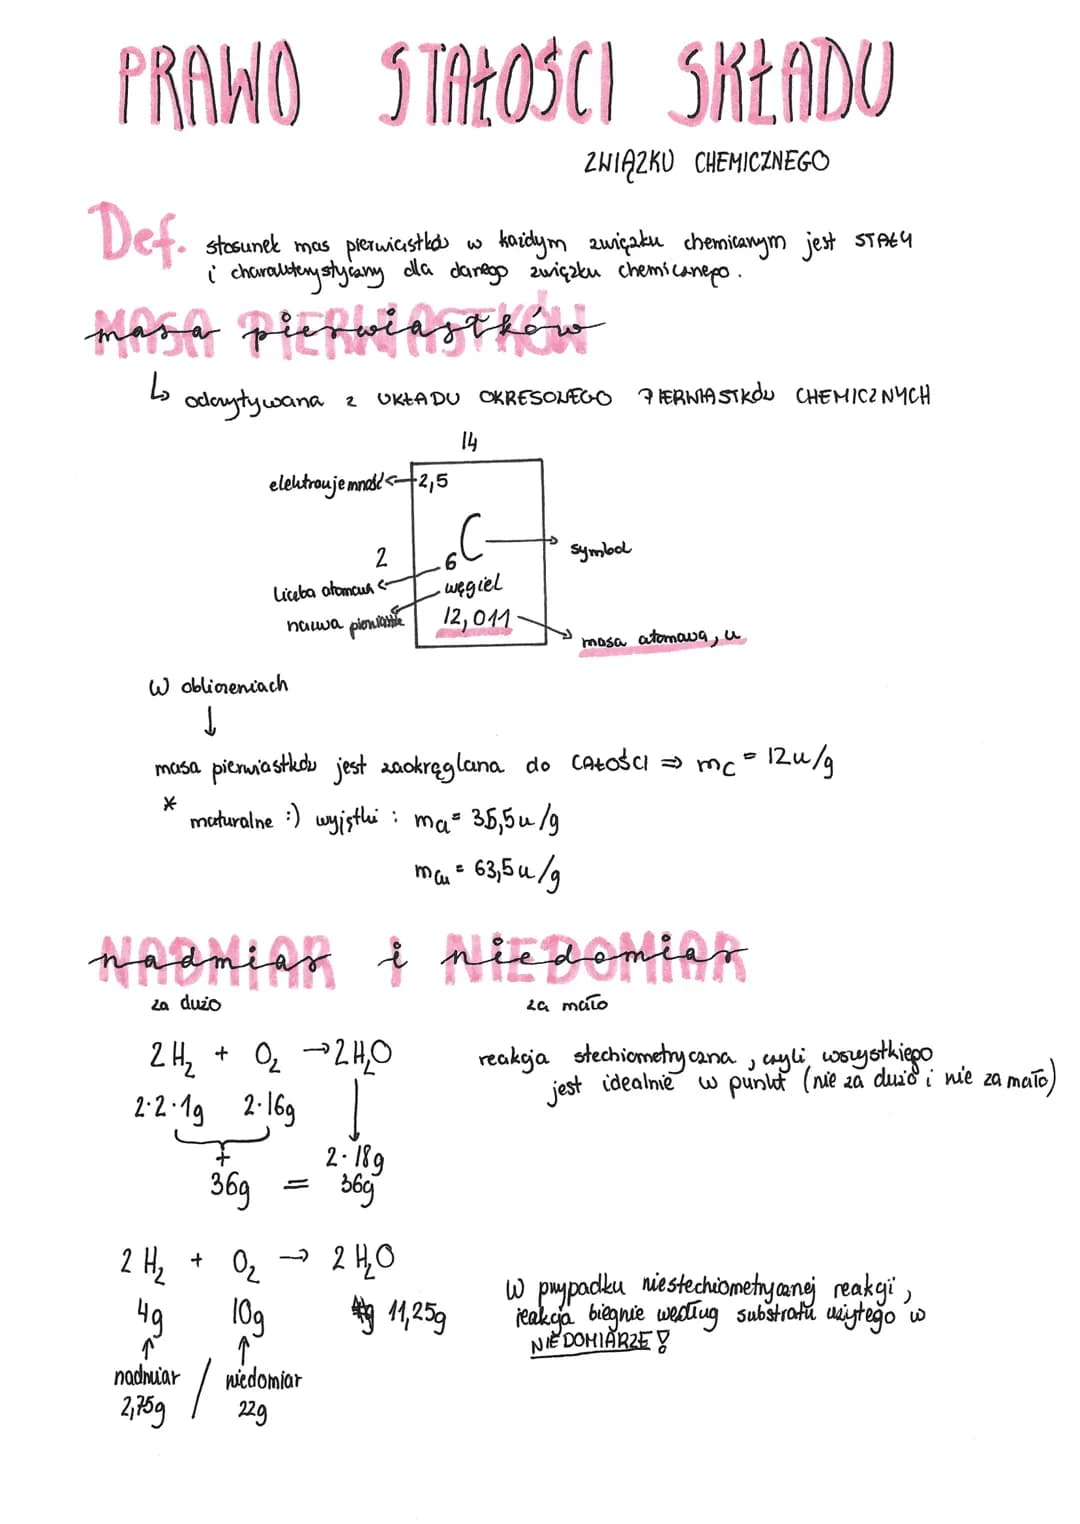 PRAWO STAŁOŚCI SKŁADU
ZWIĄZKU CHEMICZNEGO
Def. stosunek mas pierwiastków w każdym związku chemicznym jest STAŁY
i charakterystyczny dla danego związku chemicznego.
MASA PIERWIASTKÓW
masa pierwiastków
↳ odczytywana z UKŁADU OKRESOWEGO PIERWIASTKÓW CHEMICZNYCH
14
elektroujemność ← 2,5
C → symbol
2
6
liczba atomowa ← węgiel
nazwa pierwiastka 12,011
masa atomowa, u
W obliczeniach
↓
masa pierwiastków jest zaokrąglana do CAŁOŚCI ⇒ mC = 12u/g
* maturalne :) wyjątki : mCl = 35,5u/g
mCu = 63,5u/g
NADMIAR i NIEDOMIAR
nadmiar i niedomiar
za dużo za mało
2H₂ + O₂ → 2H₂O
2·2·1g 2·16g
+
2·18g
36g = 36g
reakcja stechiometryczna, czyli wszystkiego
jest idealnie w punkt (nie za dużo i nie za mało)
2H₂ + O₂ → 2H₂O
4g 10g 11,25g
↑ ↑
nadmiar / niedomiar
2,75g 22g
W przypadku niestechiometrycznej reakcji,
reakcja biegnie według substratu użytego w
NIEDOMIARZE!